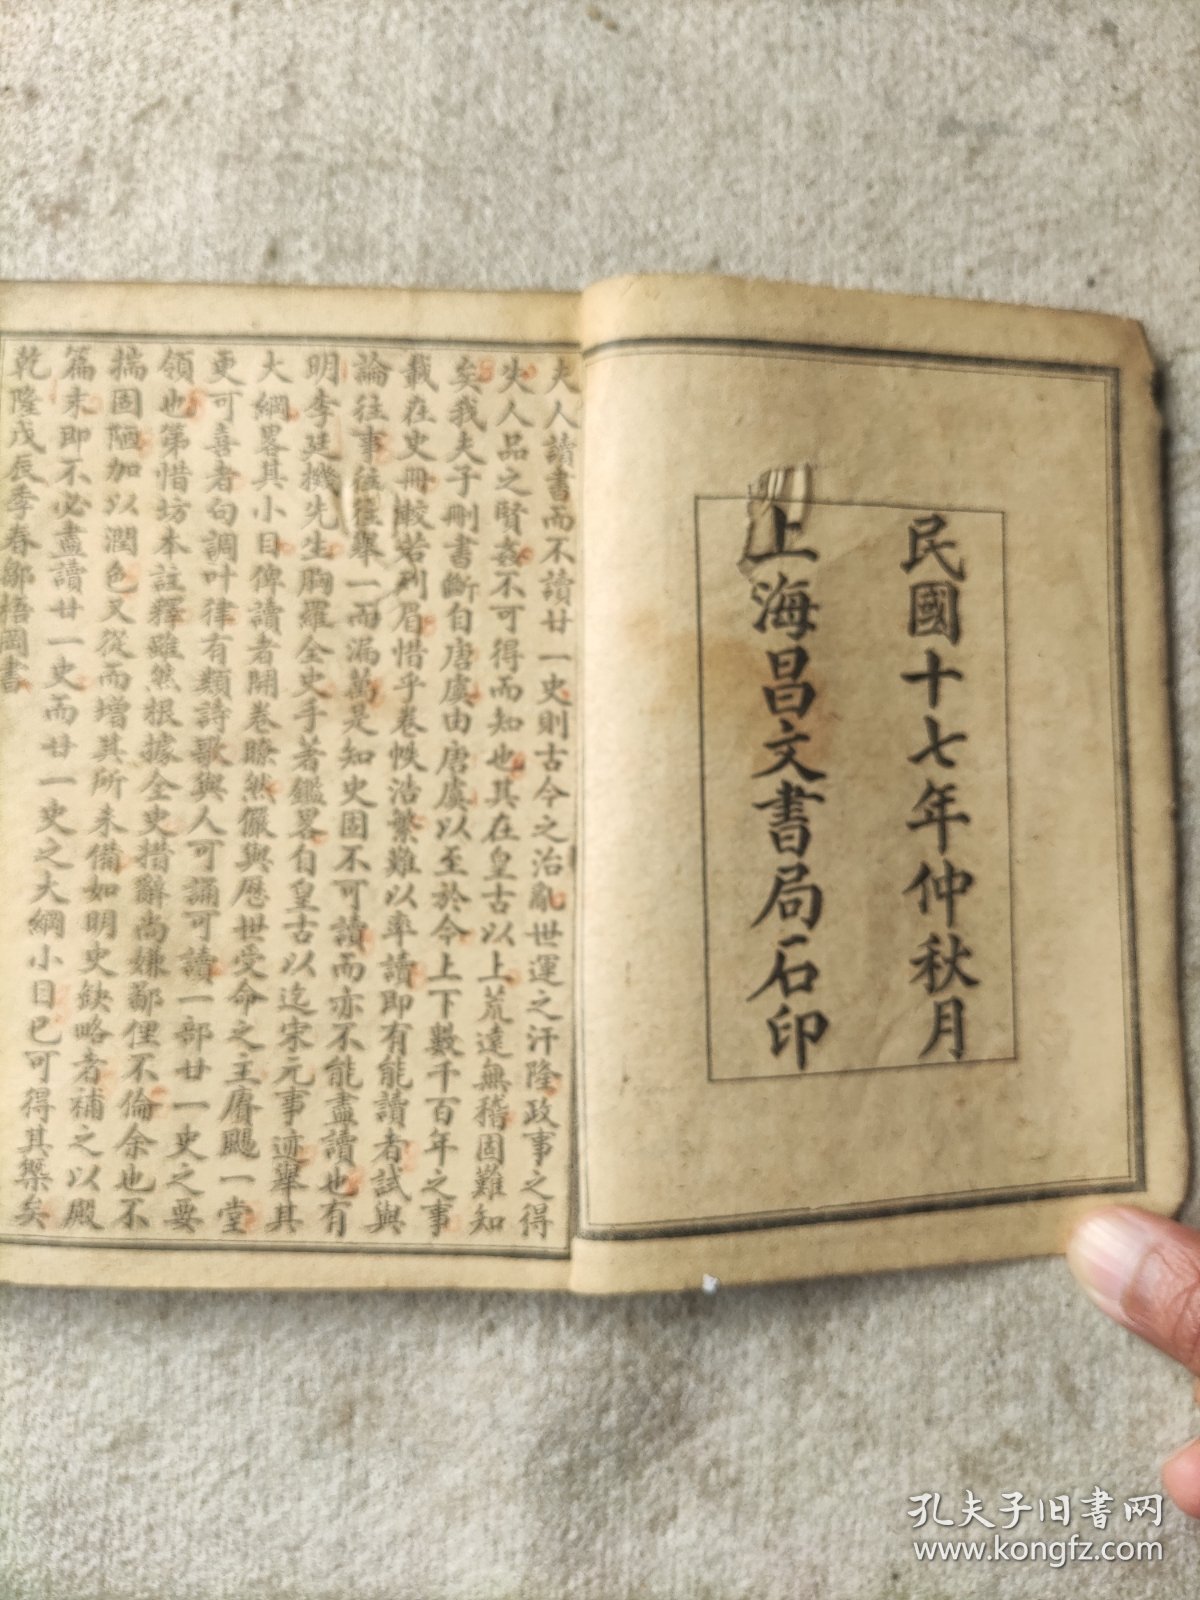 民國十七年仲秋月
上海昌文書局石印
夫人讀書而不讀廿一史則古今之治亂世運之汙隆政事之得
失人品之賢姦不可得而知也其在皇古以上荒遠無稽固難知
矣我夫子刪書斷自唐虞由唐虞以至於今上下數千百年之事
載在史冊較若列眉惜乎卷帙浩繁難以率讀即有能讀者試與
論往事往往舉一而漏萬是知史固不可讀而亦不能盡讀也有
明李廷機先生胸羅全史手著鑑畧自皇古以迄宋元事迹舉其
大綱畧其小目俾讀者開卷瞭然儼與歷世受命之主賡颺一堂
更可喜者句調叶律有類詩歌與人可誦可讀一部廿一史之要
領也第惜坊本註釋雖然根據全史措辭尚嫌鄙俚不倫余也不
揣固陋加以潤色又從而增其所未備如明史缺略者補之以殿
篇末即不必盡讀廿一史而廿一史之大綱小目已可得其槩矣
乾隆戊辰季春鄒梧岡書
孔夫子旧书网
www.kongfz.com